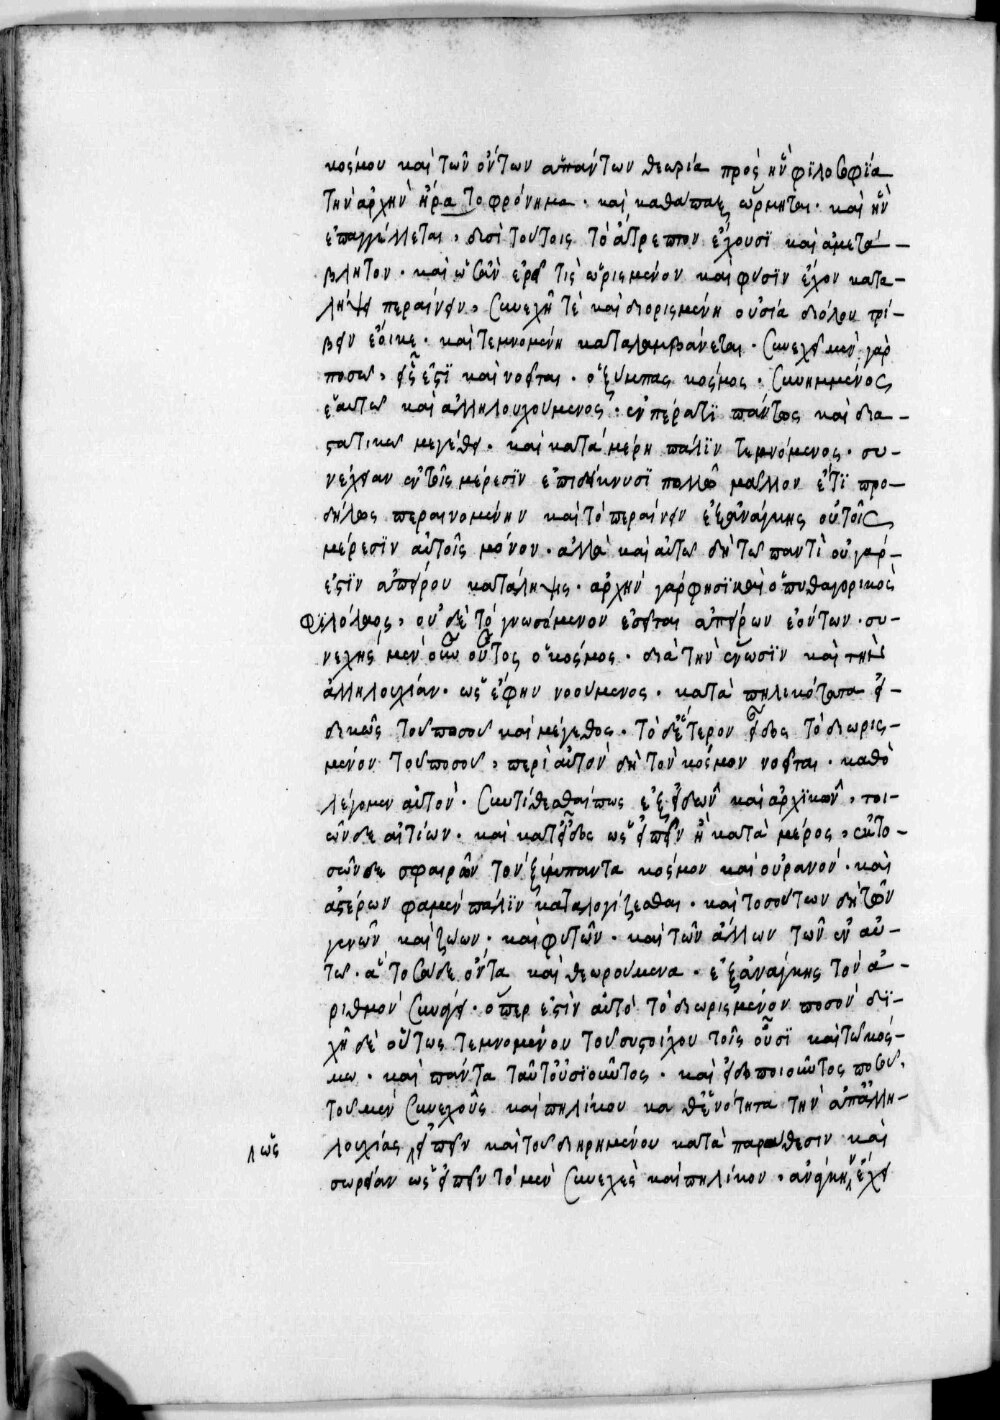 κόσμου καὶ τῶν ὄντων ἁπάντων θεωρία πρὸς ἣν ἡ φϊλοσοφΐα
τὴν ἀρχὴν ᾗρα τὸ φρόνημα . καὶ καθάπαξ ὥρμηται . καὶ ἣν
ἐπαγγέλλεται , δυσὶ τούτοις τὸ ἄτρεπτον ἔχουσϊ καὶ ἀμετά-
βλητον . καὶ ὡσὰν ἐρεῖ τὶς ὡρισμένον καὶ φυσϊν ἔχον κατα-
λήψει περαίνειν , συνεχῆ τὲ καὶ διορισμένη οὐσία διόλου τρί-
βειν ἔοικε . καὶ τεμνομένη καταλαμβάνεται . συνεχεῖ μὲν γὰρ
ποσῶ , εἷς ἐστϊ καὶ νοεῖται . ὁ ξύμπας κόσμος . συνημμένος
ἑαυτῶ καὶ ἀλληλουχούμενος . ἐν πέρατϊ πάντως καὶ δια-
στατικῶ μεγέθει . καὶ κατὰ μέρη πάλϊν τεμνόμενος . συ-
νέχειαν ἐν τοῖς μέρεσϊν ἐπιδείκνυσϊ πολλῶ μᾶλλον ἔτϊ προ-
δήλως περαινομένην καὶ τὸ περαίνειν ἐξανάγκης οὐ τοῖς
μέρεσϊν αὐτοῖς μόνον . ἀλλὰ καὶ αὐτῶ δὴ τῶ παντὶ οὐ γὰρ-
ἐστϊν ἀπείρου κατάληψις . ἀρχὴν γάρ φησϊ καὶ ὁ πυθαγορικὸς
Φϊλόλαος , οὐδὲ τὸ γνωσόμενον ἐσεῖται ἀπείρων ἐόντων . συ-
νεχὴς μὲν οὖν οὗτος ὁ κόσμος . διὰ τὴν ἕνωσϊν καὶ τὴν
ἀλληλουχίαν . ὡς ἔφην νοούμενος . κατὰ πηλικότητα εἰ-
δικῶς τοῦ ποσοῦ καὶ μέγεθος . τὸ δεύτερον εἶδος τὸ διωρισ-
μένον τοῦ ποσοῦ , περὶ αὐτὸν δὴ τὸν κόσμον νοεῖται . καθὸ
λέγομεν αὐτὸν . συντίθεσθαί πως ἐξ εἰδῶν καὶ ἀρχϊκῶν , τοι-
ῶν δε αἰτίων . καὶ κατ' εἶδος ὡς εἰπεῖν ἢ κατὰ μέρος , ἐκ το-
σῶνδε σφαιρῶν τὸν ξύμπαντα κόσμον καὶ οὐρανόν . καὶ
ἀστέρων φαμὲν πάλϊν καταλογίζεσθαι . καὶ τοσούτων δὴ τῶν
γενῶν καὶ ζώων . καὶ φυτῶν . καὶ τῶν ἄλλων τῶν ἐν αὐ-
τῶ . ἃ τοσάδε ὄντα καὶ θεωρούμενα . ἐξανάγκης τὸν ἀ-
ριθμὸν συνάγει . ὅπερ ἐστὶν αὐτὸ τὸ διωρισμένον ποσὸν διϊ-
χῆ δὲ οὕτως τεμνομένου τοῦ συστοίχου τοῖς οὖσϊ καὶ τῶ κόσ-
μω . καὶ πάντα ταῦτ' οὐσϊοῦντος . καὶ εἰδοποιοῦντος ποσοῦ ,
τοῦ μὲν συνεχοῦς καὶ πηλίκου καθ' ἑνότητα τὴν ἀπ' ἀλλη-
λουχίας ὡς εἰπεῖν καὶ τοῦ διῃρημένου κατὰ παράθεσιν καὶ
σωρείαν ὡς εἰπεῖν τὸ μὲν συνεχὲς καὶ πηλίκον , ἀνάγκην ἔχει